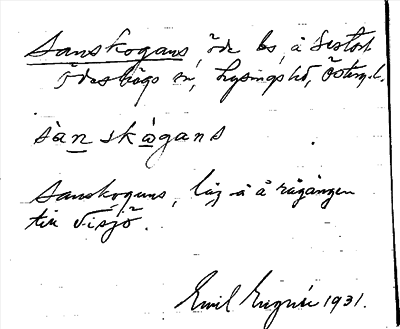 Sanskogans, öde bs, å Sestorp
Ödeshögs sn, Lysings hd, Östergötl.
sàn skògans
Sanskogans, låg å å rågången
till Visjö.
Emil 1931.